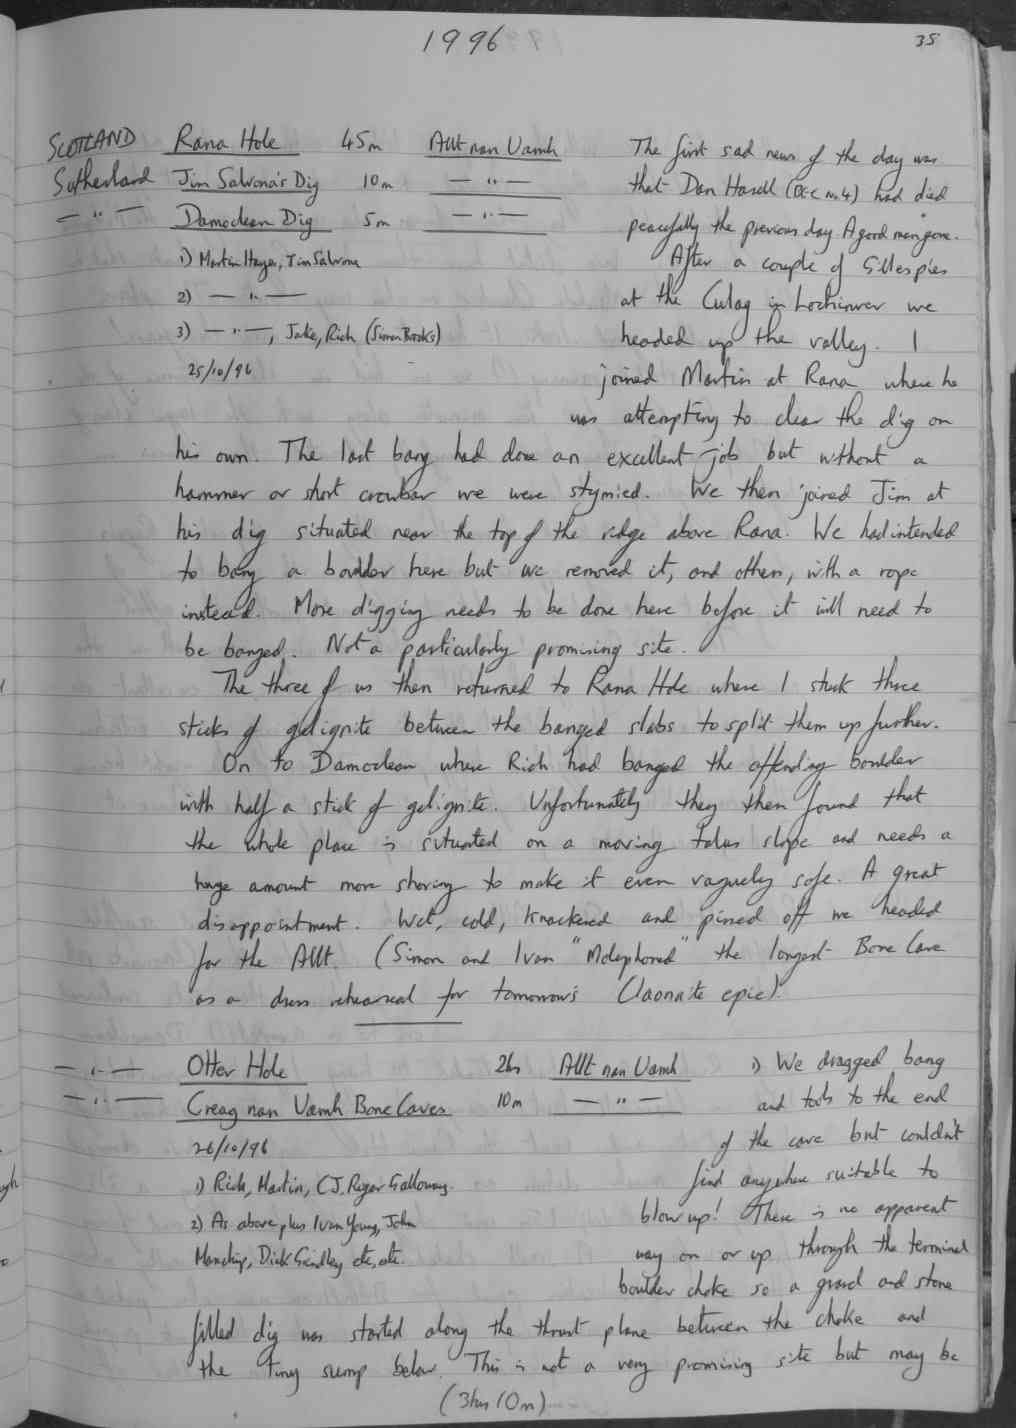 1996
35
SCOTLAND Rana Hole 45m Allt nan Uamh
Sutherland Jim Salvona's Dig 10m — " —
— " — Damoclean Dig 5m — " —
1) Martin Hayes, Jim Salvona
2) — " —
3) — " —, Jake, Rich (Simon Brooks)
25/10/96
The first sad news of the day was
that Dan Hasell (BEC no.4) had died
peacefully the previous day. A good man gone.
After a couple of Gillespies
at the Culag in Lochinver we
headed up the valley. I
joined Martin at Rana where he
was attempting to clear the dig on
his own. The last bang had done an excellent job but without a
hammer or short crowbar we were stymied. We then joined Jim at
his dig situated near the top of the ridge above Rana. We had intended
to bang a boulder here but we removed it, and others, with a rope
instead. More digging needs to be done here before it will need to
be banged. Not a particularly promising site.
The three of us then returned to Rana Hole where I stuck three
sticks of gelignite between the banged slabs to split them up further.
On to Damoclean where Rich had banged the offending boulder
with half a stick of gelignite. Unfortunately they then found that
the whole place is situated on a moving talus slope and needs a
huge amount more shoring to make it even vaguely safe. A great
disappointment. Wet, cold, knackered and pissed off we headed
for the Allt. (Simon and Ivan "Molephoned" the longest Bone Cave
as a dress rehearsal for tomorrow's Claonaite epic).
— " — Otter Hole 2hrs Allt nan Uamh
— " — Creag nan Uamh Bone Caves 10m — " —
26/10/96
1) Rich, Martin, CJ, Roger Galloway.
2) As above plus Ivan Young, John
Manchip, Dick Grindley etc, etc.
1) We dragged bang
and tools to the end
of the cave but couldn't
find anywhere suitable to
blow up! There is no apparent
way on or up through the terminal
boulder choke so a gravel and stone
filled dig was started along the thrust plane between the choke and
the tiny sump below. This is not a very promising site but may be
(3hrs 10m)